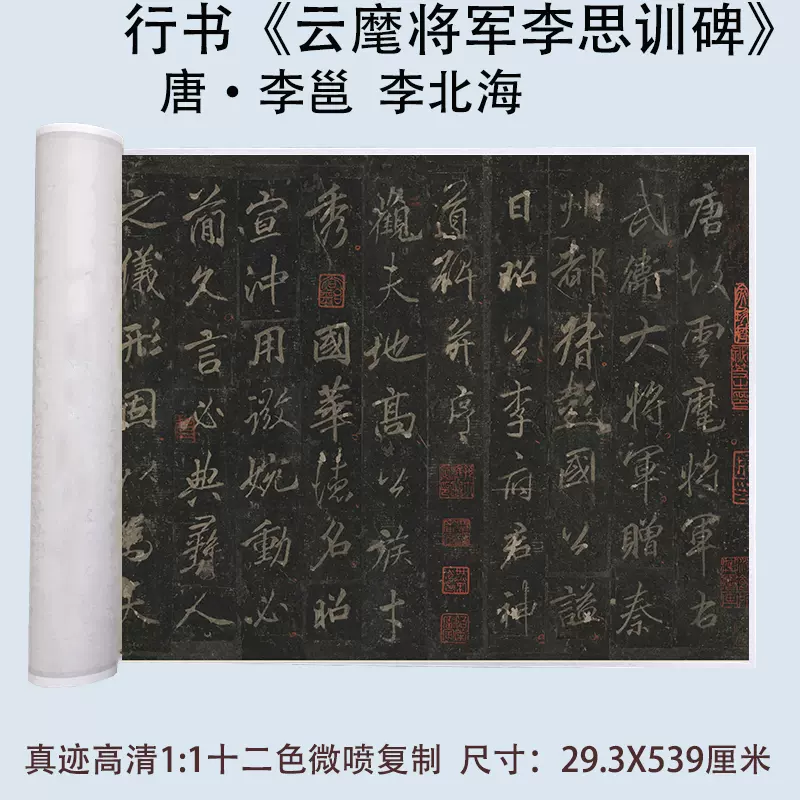 行书《云麾将军李思训碑》
唐·李邕 李北海
唐故雲麾将軍右
武衛大将軍贈秦
州都督彭國公謚
曰昭公李府君神
道碑并序
觀夫地高公族才
秀國華德名昭
宣沖用微婉動必
簡久言必典彝人
之儀形固以為天
真迹高清1:1十二色微喷复制 尺寸：29.3X539厘米